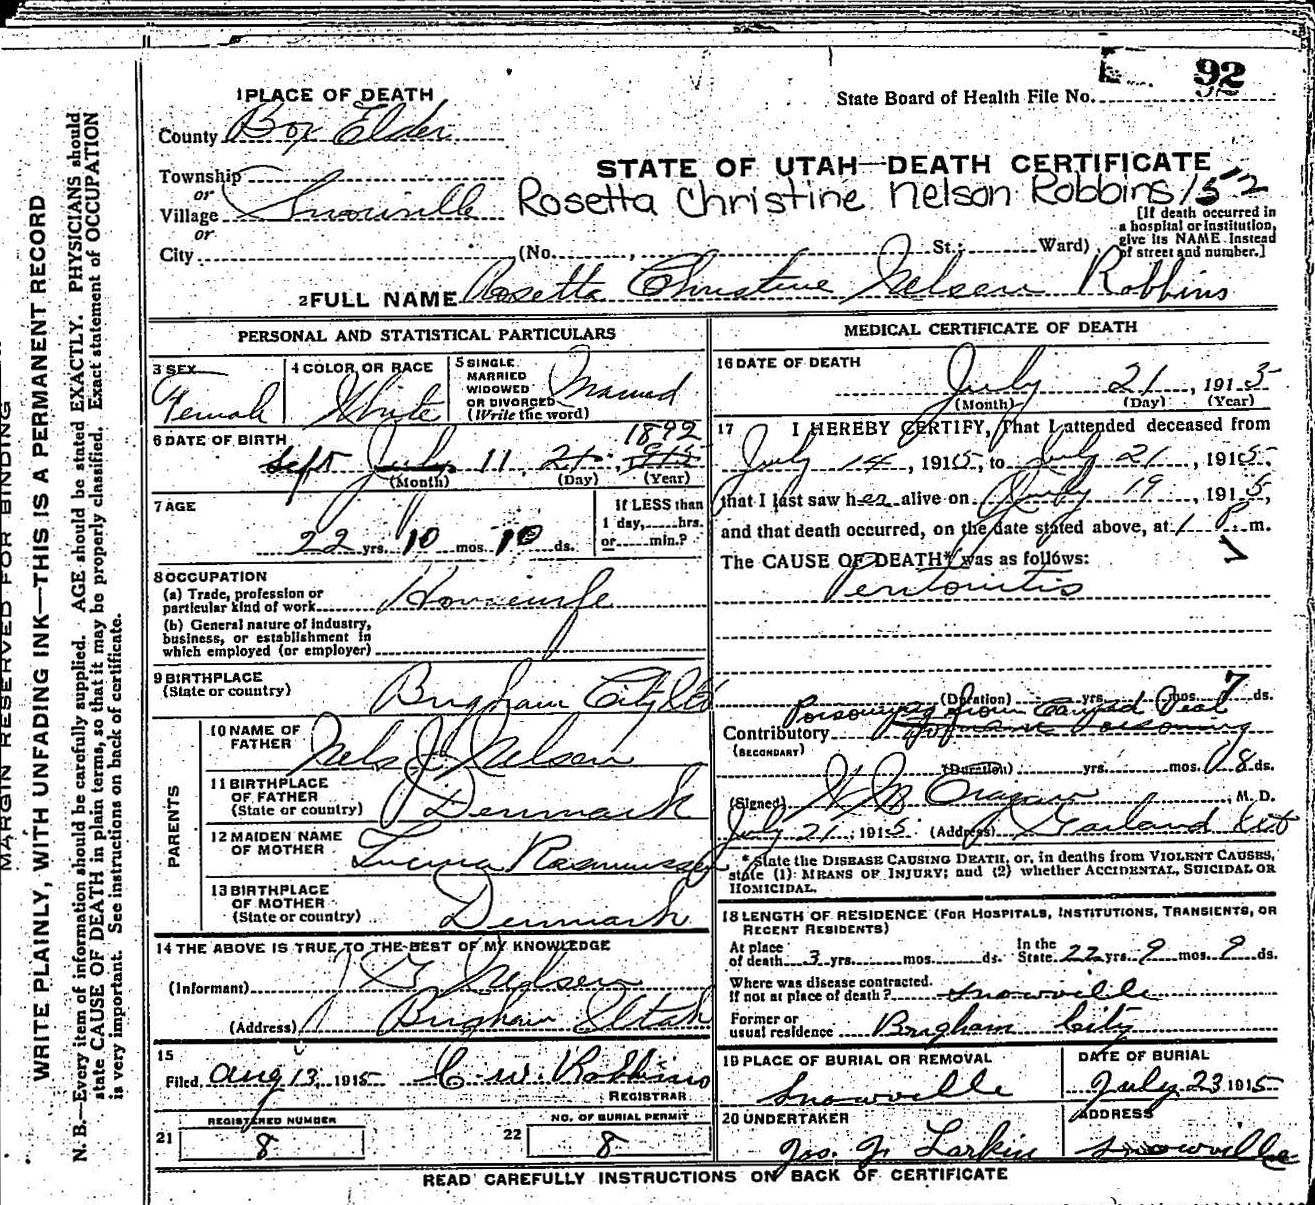 92
State Board of Health File No.
1 PLACE OF DEATH
County Box Elder
STATE OF UTAH—DEATH CERTIFICATE
Township
or
Village Snowville
Rosetta Christine Nelson Robbins 152
or
City (No. , St.; Ward)
[If death occurred in
a hospital or institution,
give its NAME instead
of street and number.]
2 FULL NAME Rosetta Christine Nelsen Robbins
PERSONAL AND STATISTICAL PARTICULARS
3 SEX
Female
4 COLOR OR RACE
White
5 SINGLE.
MARRIED
WIDOWED
OR DIVORCED
(Write the word)
Married
6 DATE OF BIRTH
1892
Sept July 11, 21
(Month) (Day) (Year)
7 AGE
22 yrs. 10 mos. 10 ds.
If LESS than
1 day, hrs.
or min.?
8 OCCUPATION
(a) Trade, profession or
particular kind of work Housewife
(b) General nature of industry,
business, or establishment in
which employed (or employer)
9 BIRTHPLACE
(State or country)
Brigham City
PARENTS
10 NAME OF
FATHER
Nels J Nelsen
11 BIRTHPLACE
OF FATHER
(State or country)
Denmark
12 MAIDEN NAME
OF MOTHER
Rasmussen
13 BIRTHPLACE
OF MOTHER
(State or country)
Denmark
14 THE ABOVE IS TRUE TO THE BEST OF MY KNOWLEDGE
(Informant) Nelsen
(Address) Brigham Utah
15
Filed Aug 13, 1915 C. W. Robbins
REGISTRAR
REGISTERED NUMBER
21 8
NO. OF BURIAL PERMIT
22 8
MEDICAL CERTIFICATE OF DEATH
16 DATE OF DEATH
July 21, 1915
(Month) (Day) (Year)
17 I HEREBY CERTIFY, That I attended deceased from
July 14, 1915, to July 21, 1915,
that I last saw her alive on July 19, 1915,
and that death occurred, on the date stated above, at 1 P. m.
The CAUSE OF DEATH* was as follows:
Peritonitis
(Duration) yrs. mos. 7 ds.
Poisoning from Canned
Contributory Ptomaine Poisoning
(SECONDARY)
(Duration) yrs. mos. 8 ds.
(Signed) , M. D.
July 21, 1915 (Address) Garland Ut
* State the DISEASE CAUSING DEATH, or, in deaths from VIOLENT CAUSES,
state (1) MEANS OF INJURY; and (2) whether ACCIDENTAL, SUICIDAL OR
HOMICIDAL.
18 LENGTH OF RESIDENCE (FOR HOSPITALS, INSTITUTIONS, TRANSIENTS, OR
RECENT RESIDENTS)
At place
of death 3 yrs. mos. ds.
In the
State 22 yrs. 9 mos. 9 ds.
Where was disease contracted.
If not at place of death? Snowville
Former or
usual residence Brigham City
19 PLACE OF BURIAL OR REMOVAL
Snowville
DATE OF BURIAL
July 23 1915
20 UNDERTAKER
Jas. J. Larkin
ADDRESS
Snowville
READ CAREFULLY INSTRUCTIONS ON BACK OF CERTIFICATE
MARGIN RESERVED FOR BINDING
WRITE PLAINLY, WITH UNFADING INK—THIS IS A PERMANENT RECORD
N. B.—Every item of information should be carefully supplied. AGE should be stated EXACTLY. PHYSICIANS should
state CAUSE OF DEATH in plain terms, so that it may be properly classified. Exact statement of OCCUPATION
is very important. See instructions on back of certificate.